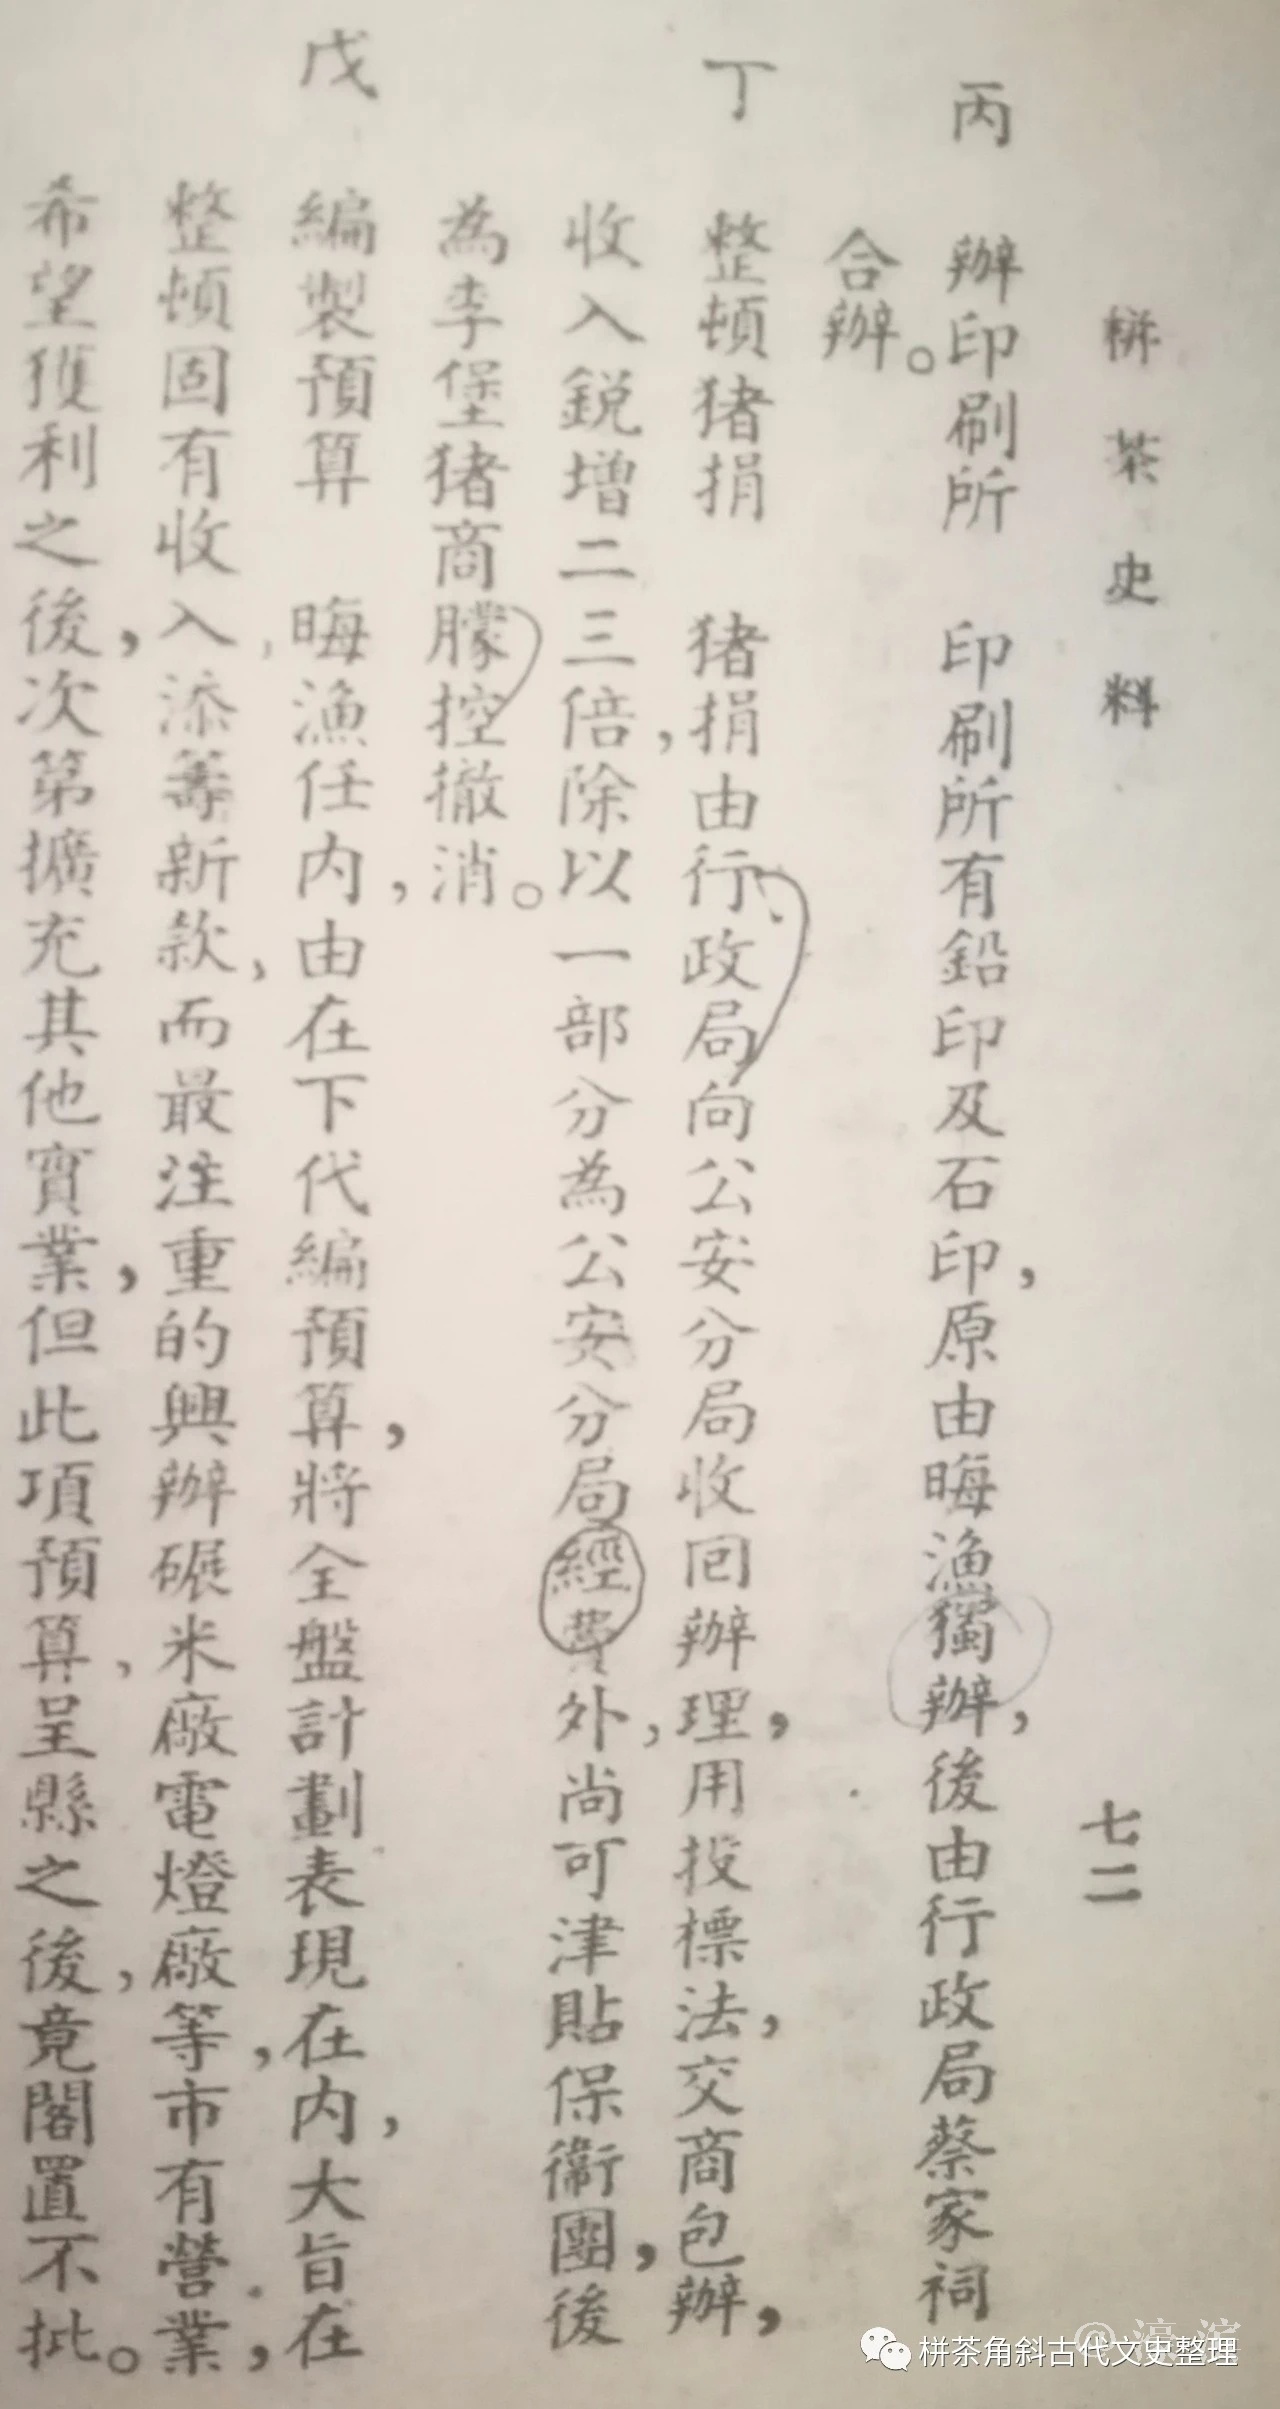 栟茶史料 七二
丙 辦印刷所 印刷所有鉛印及石印，原由晦漁獨辦，後由行政局蔡家祠
合辦。
丁 整頓猪捐 猪捐由行政局向公安分局收回辦理，用投標法，交商包辦，
收入銳增二三倍，除以一部分為公安分局經費外，尚可津貼保衛團，後
為李堡猪商朦控撤消。
戊 編製預算 晦漁任内，由在下代編預算，將全盤計劃表現在内，大旨在
整頓固有收入，添籌新款，而最注重的興辦碾米廠電燈廠等，市有營業，
希望獲利之後，次第擴充其他實業，但此項預算，呈縣之後，竟閣置不批。
栟茶角斜古代文史整理
@濠滨